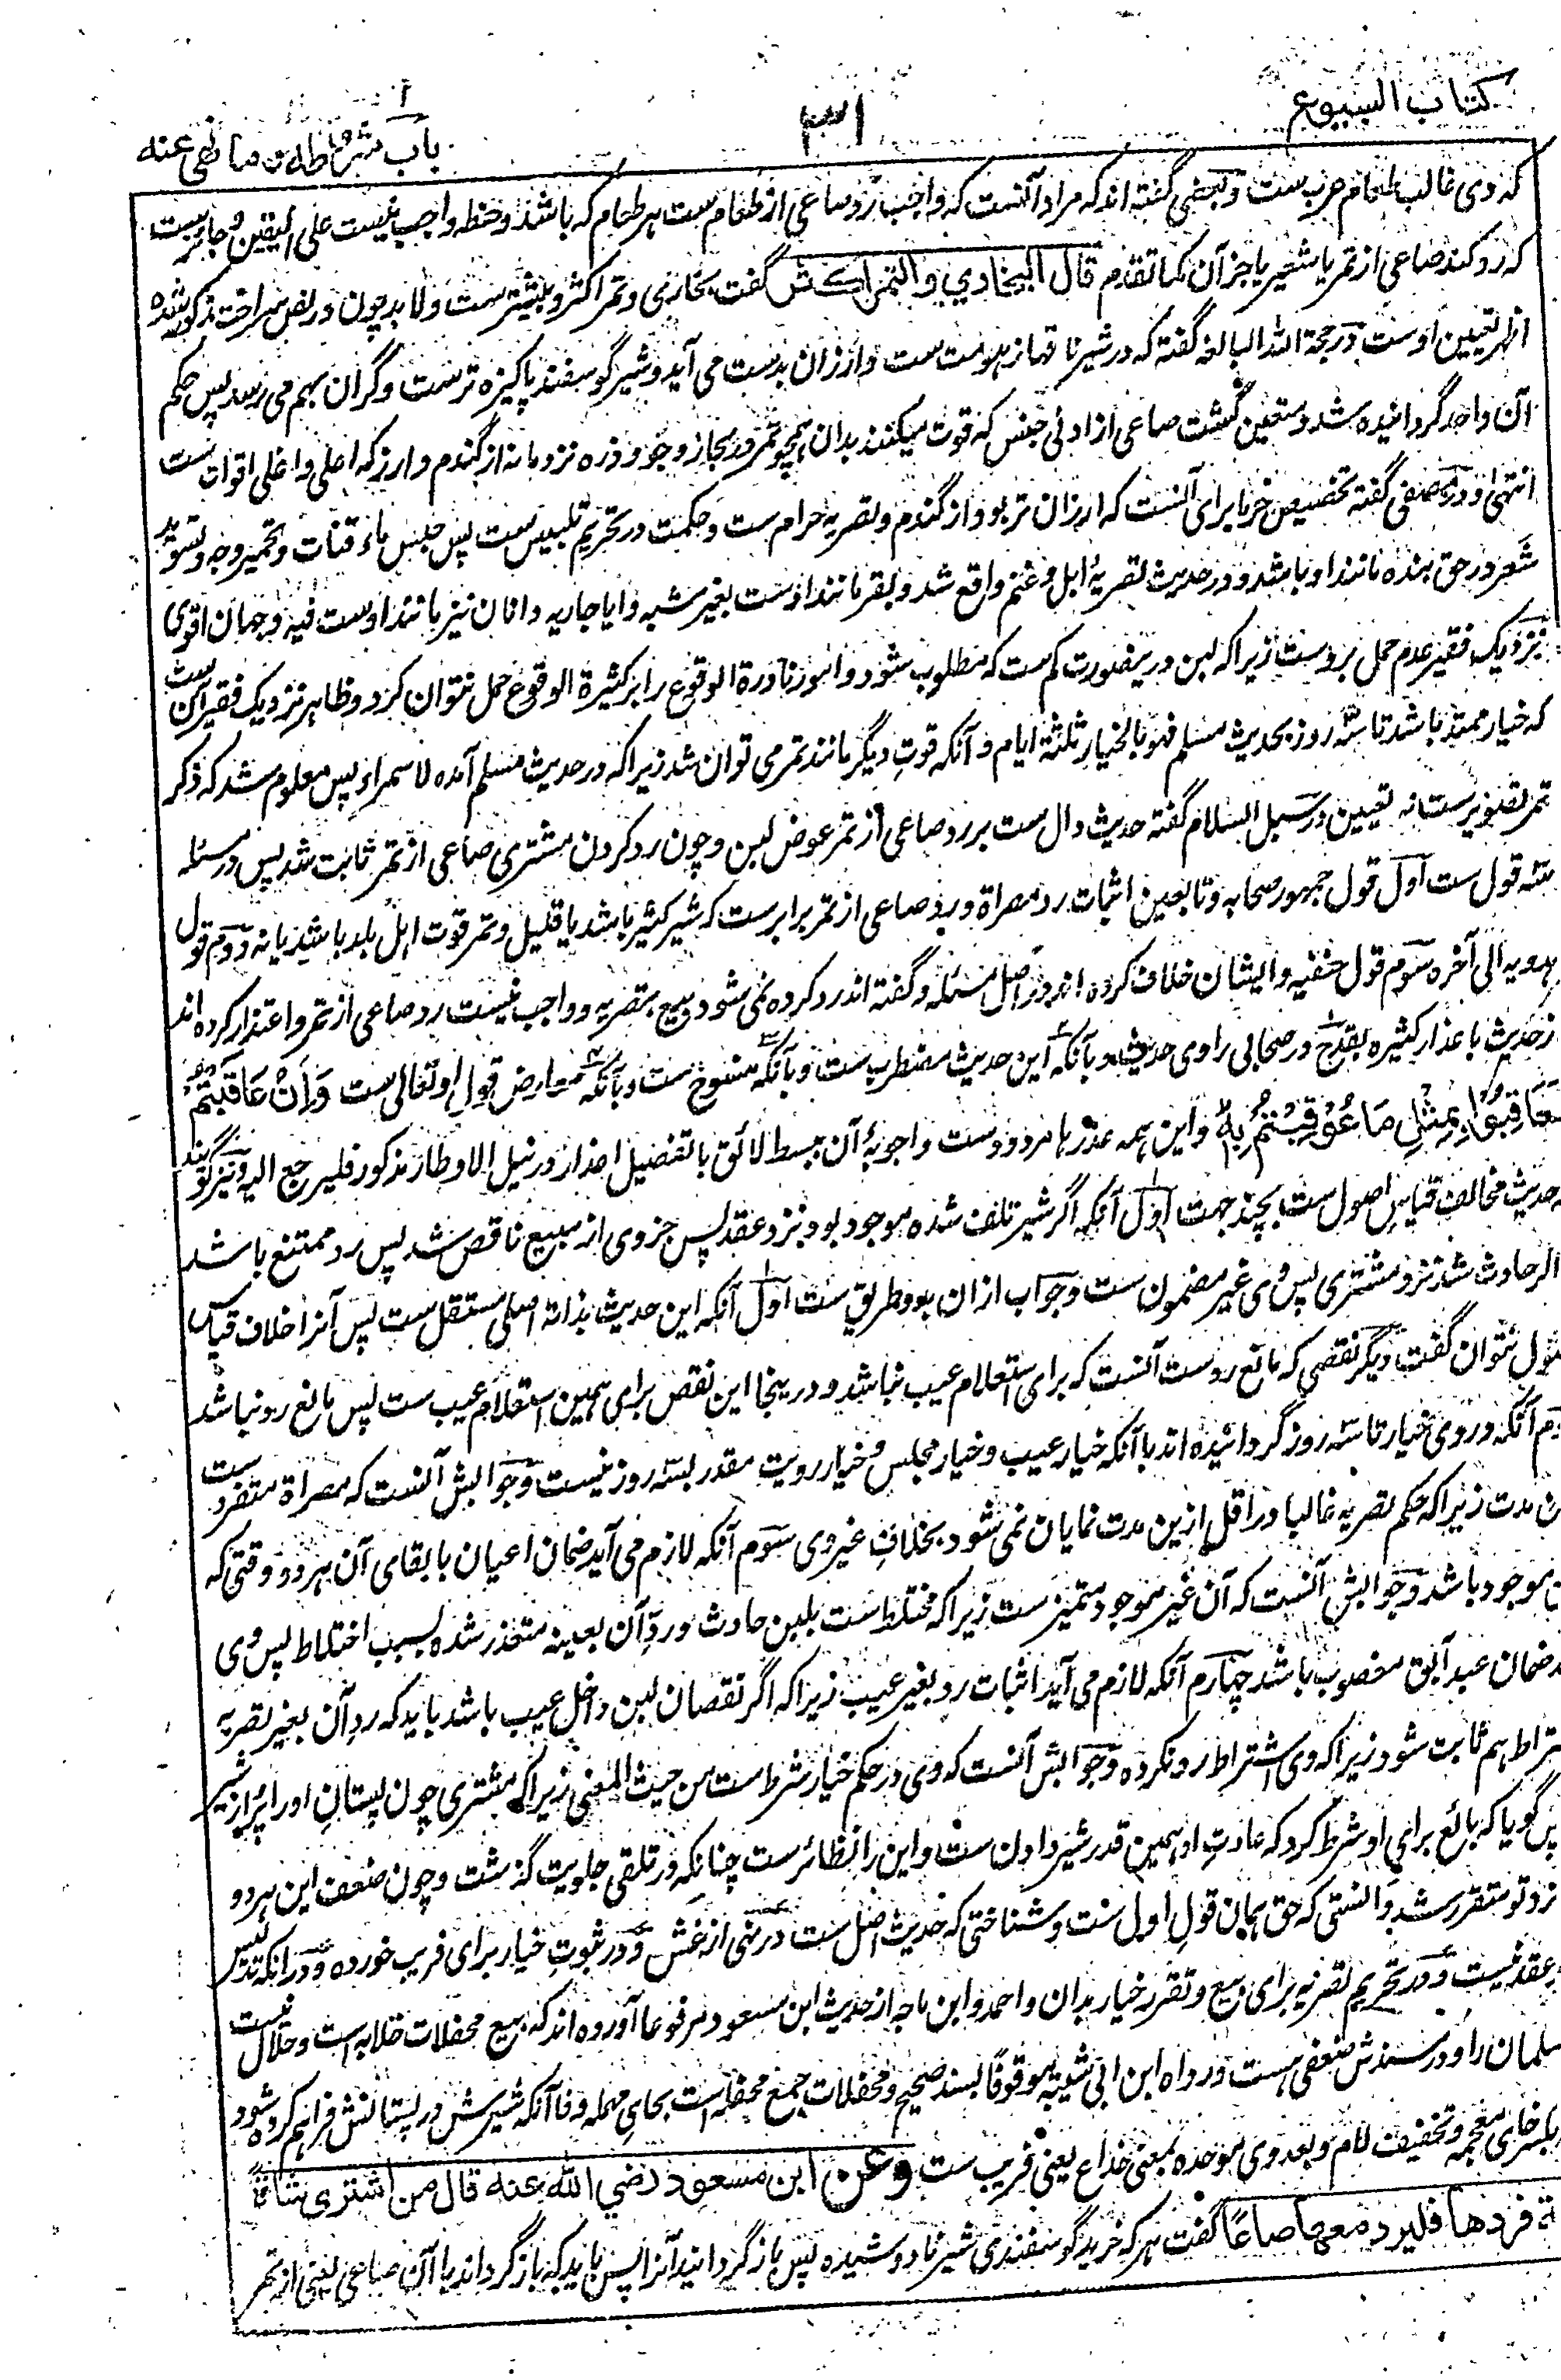 کتاب البیوع
۳۱
باب شروطه وما نهی عنه
که وی غالب طعام عرب ست و بعضی گفته اند که مراد آنست که واجب رد صاعی از طعام ست هر طعام که باشد و حنطه واجب نیست علی الیقین و جائز ست
که رد کند صاعی از تمر یا شعیر یا جز آن کما تقدم قال البخاري والتمر اکثر گفت بخاری و تمر اکثر و بیشتر ست و لا بد چون در نص صراحت مذکور شده
اظهر تعیین اوست در حجة الله البالغه گفته که در شیر ناقها زهومت ست و ارزان بدست می آید و شیر گوسفند پاکیزه ترست و گران بهم می رسد پس حکم
آن واحد گردانیده شد و متعین گشت صاعی از ادنی جنس که قوت میکنند بدان همچو تمر در حجاز و جو و ذره نزد ما نه از گندم و ارز که اعلی و اغلی اقوات ست
انتهی و در مصفی گفته تخصیص خرما برای آنست که ارزان تر بود از گندم و تصریه حرام ست و حکمت در تحریم تلبیس ست پس حبس ماء قنات و تحمیر وجه و تسوید
شعر در حق بنده مانند او باشد و در حدیث تصریهٔ ابل و غنم واقع شد و بقر مانند اوست بغیر شبه و ایا جاریه و اتان نیز مانند اوست فیه وجهان اقوی
نزدیک فقیر عدم حمل بروست زیرا که لبن درینصورت کم ست که مطلوب شود و امور نادرة الوقوع را بر کثیرة الوقوع حمل نتوان کرد و ظاهر نزدیک فقیر آن ست
که خیار ممتد باشد تا سه روز بحدیث مسلم فهو بالخیار ثلثة ایام و آنکه قوت دیگر مانند تمر می توان شد زیرا که در حدیث مسلم آمده لا سمراء پس معلوم شد که ذکر
تمر تصویر ست نه تعیین در سبل السلام گفته حدیث دال ست بر رد صاعی از تمر عوض لبن و چون رد کردن مشتری صاعی از تمر ثابت شد پس در مسئله
سه قول ست اول قول جمهور صحابه و تابعین اثبات رد مصراة و رد صاعی از تمر برابر ست که شیر کثیر باشد یا قلیل و تمر قوت اهل بلد باشد یا نه دوم قول
هدویه الی آخره سوم قول حنفیه و ایشان خلاف کرده اند در اصل مسئله و گفته اند رد کرده نمی شود بیع بتصریه و واجب نیست رد صاعی از تمر و اعتذار کرده اند
از حدیث باعذار کثیره بقدح در صحابی راوی حدیث و بآنکه این حدیث مضطرب ست و بآنکه منسوخ ست و بآنکه معارض قول او تعالی ست وَإِنْ عَاقَبْتُمْ
فَعَاقِبُوا بِمِثْلِ مَا عُوْقِبْتُمْ بِهٖ و این همه عذرها مردودست و اجوبهٔ آن ببسط لائق با تفضیل اعذار در نیل الاوطار مذکور فلیرجع الیه و نیز گویند
حدیث مخالف قیاس اصول ست بچند جهت اول آنکه اگر شیر تلف شده موجود بود نزد عقد پس جزوی از مبیع ناقص شد پس رد ممتنع باشد
اگر حادث شد نزد مشتری پس وی غیر مضمون ست و جواب ازان بدو طریق ست اول آنکه این حدیث بذاته اصلی مستقل ست پس آنرا خلاف قیاس
اصول نتوان گفت دیگر نقصی که مانع رد ست آنست که برای استعلام عیب نباشد و درینجا این نقص برای همین استعلام عیب ست پس مانع رد نباشد
دوم آنکه در وی خیار تا سه روز گردانیده اند با آنکه خیار عیب و خیار مجلس و خیار رویت مقدر بسه روز نیست و جوابش آنست که مصراة منفرد ست
این مدت زیرا که حکم تصریه غالبا در اقل ازین مدت نمایان نمی شود بخلاف غیر وی سوم آنکه لازم می آید ضمان اعیان با بقای آن هر دو وقتی که
موجود باشد و جوابش آنست که آن غیر موجود متمیز ست زیرا که مختلط ست بلبن حادث و رد آن بعینه متعذر شده بسبب اختلاط پس وی
ضمان عبد آبق مغصوب باشد چهارم آنکه لازم می آید اثبات رد بغیر عیب زیرا که اگر نقصان لبن داخل عیب باشد باید که رد آن بغیر تصریه
اشتراط هم ثابت شود زیرا که وی اشتراط رد نکرده و جوابش آنست که وی در حکم خیار شرط ست من حیث المعنی زیرا که مشتری چون پستان او را پر از شیر
پس گویا که بائع برای او شرط کرد که عادت او همین قدر شیر دادن ست و این را نظائر ست چنانکه در تلقی جلوبت گذشت و چون ضعف این هر دو
نزد تو متقرر شد دانستی که حق همان قول اول ست و شناختی که حدیث اصل ست در نهی از غش و در ثبوت خیار برای فریب خورده و در آنکه تدلیس
عقد نیست و در تحریم تصریه برای بیع و تقرر خیار بدان و احمد و ابن ماجه از حدیث ابن مسعود مرفوعا آورده اند که بیع محفلات خلابه است و حلال نیست
مسلمان را و در سندش ضعفی هست و رواه ابن ابی شیبه موقوفًا بسند صحیح و محفلات جمع محفله است بحای مهمله و فا آنکه شیرش در پستانش فراهم کرده شود
بکسر خای معجمه و تخفیف لام و بعد وی موحده بمعنی خداع یعنی فریب ست وعن ابن مسعود رضي الله عنه قال من اشتری شاةً
فردها فلیرد معها صاعًا گفت هر که خرید گوسفندی شیر نادوشیده پس بازگردانید آنرا پس باید که بازگرداند با آن صاعی یعنی از تمر